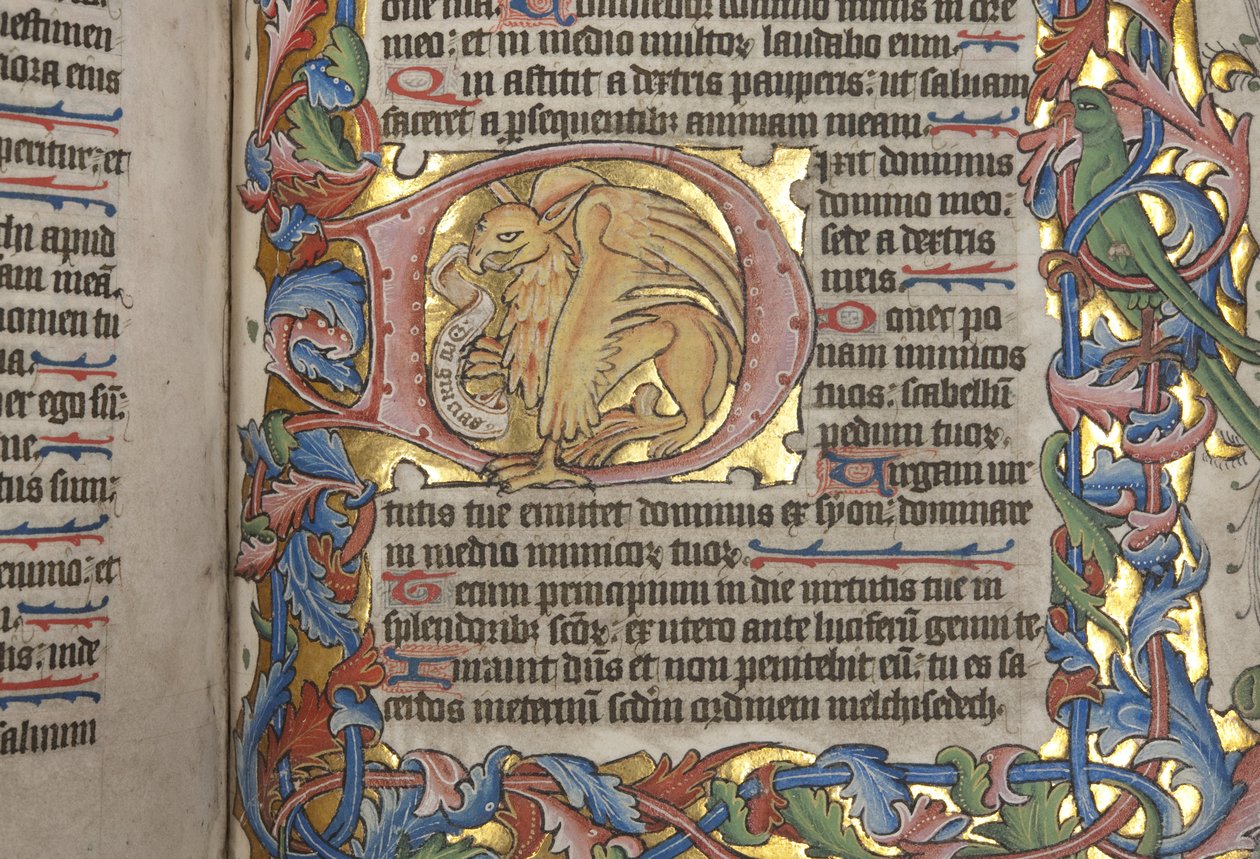 uestimen
riora eius
peritur: et
apud
meā.
nomen tu
ego
me.
tus sum:
et
inde
saluum
Confitebor domino nimis in ore
meo: et in medio multoꝝ laudabo eum.
Qui astitit a dextris pauperis: ut saluam
faceret a ꝑsequentibꝫ animam meam.
Dixit dominus
domino meo:
sede a dextris
meis.
Donec po
nam inimicos
tuos: scabellū
pedum tuoꝝ.
Uirgam uir
tutis tue emittet dominus ex syon: dominare
in medio inimicoꝝ tuoꝝ.
Tecum principium in die uirtutis tue in
splendoribꝫ scōꝝ: ex utero ante luciferū genui te.
Iurauit dn̄s et non penitebit eū: tu es sa
cerdos ineternū scdm ordinem melchisedech.